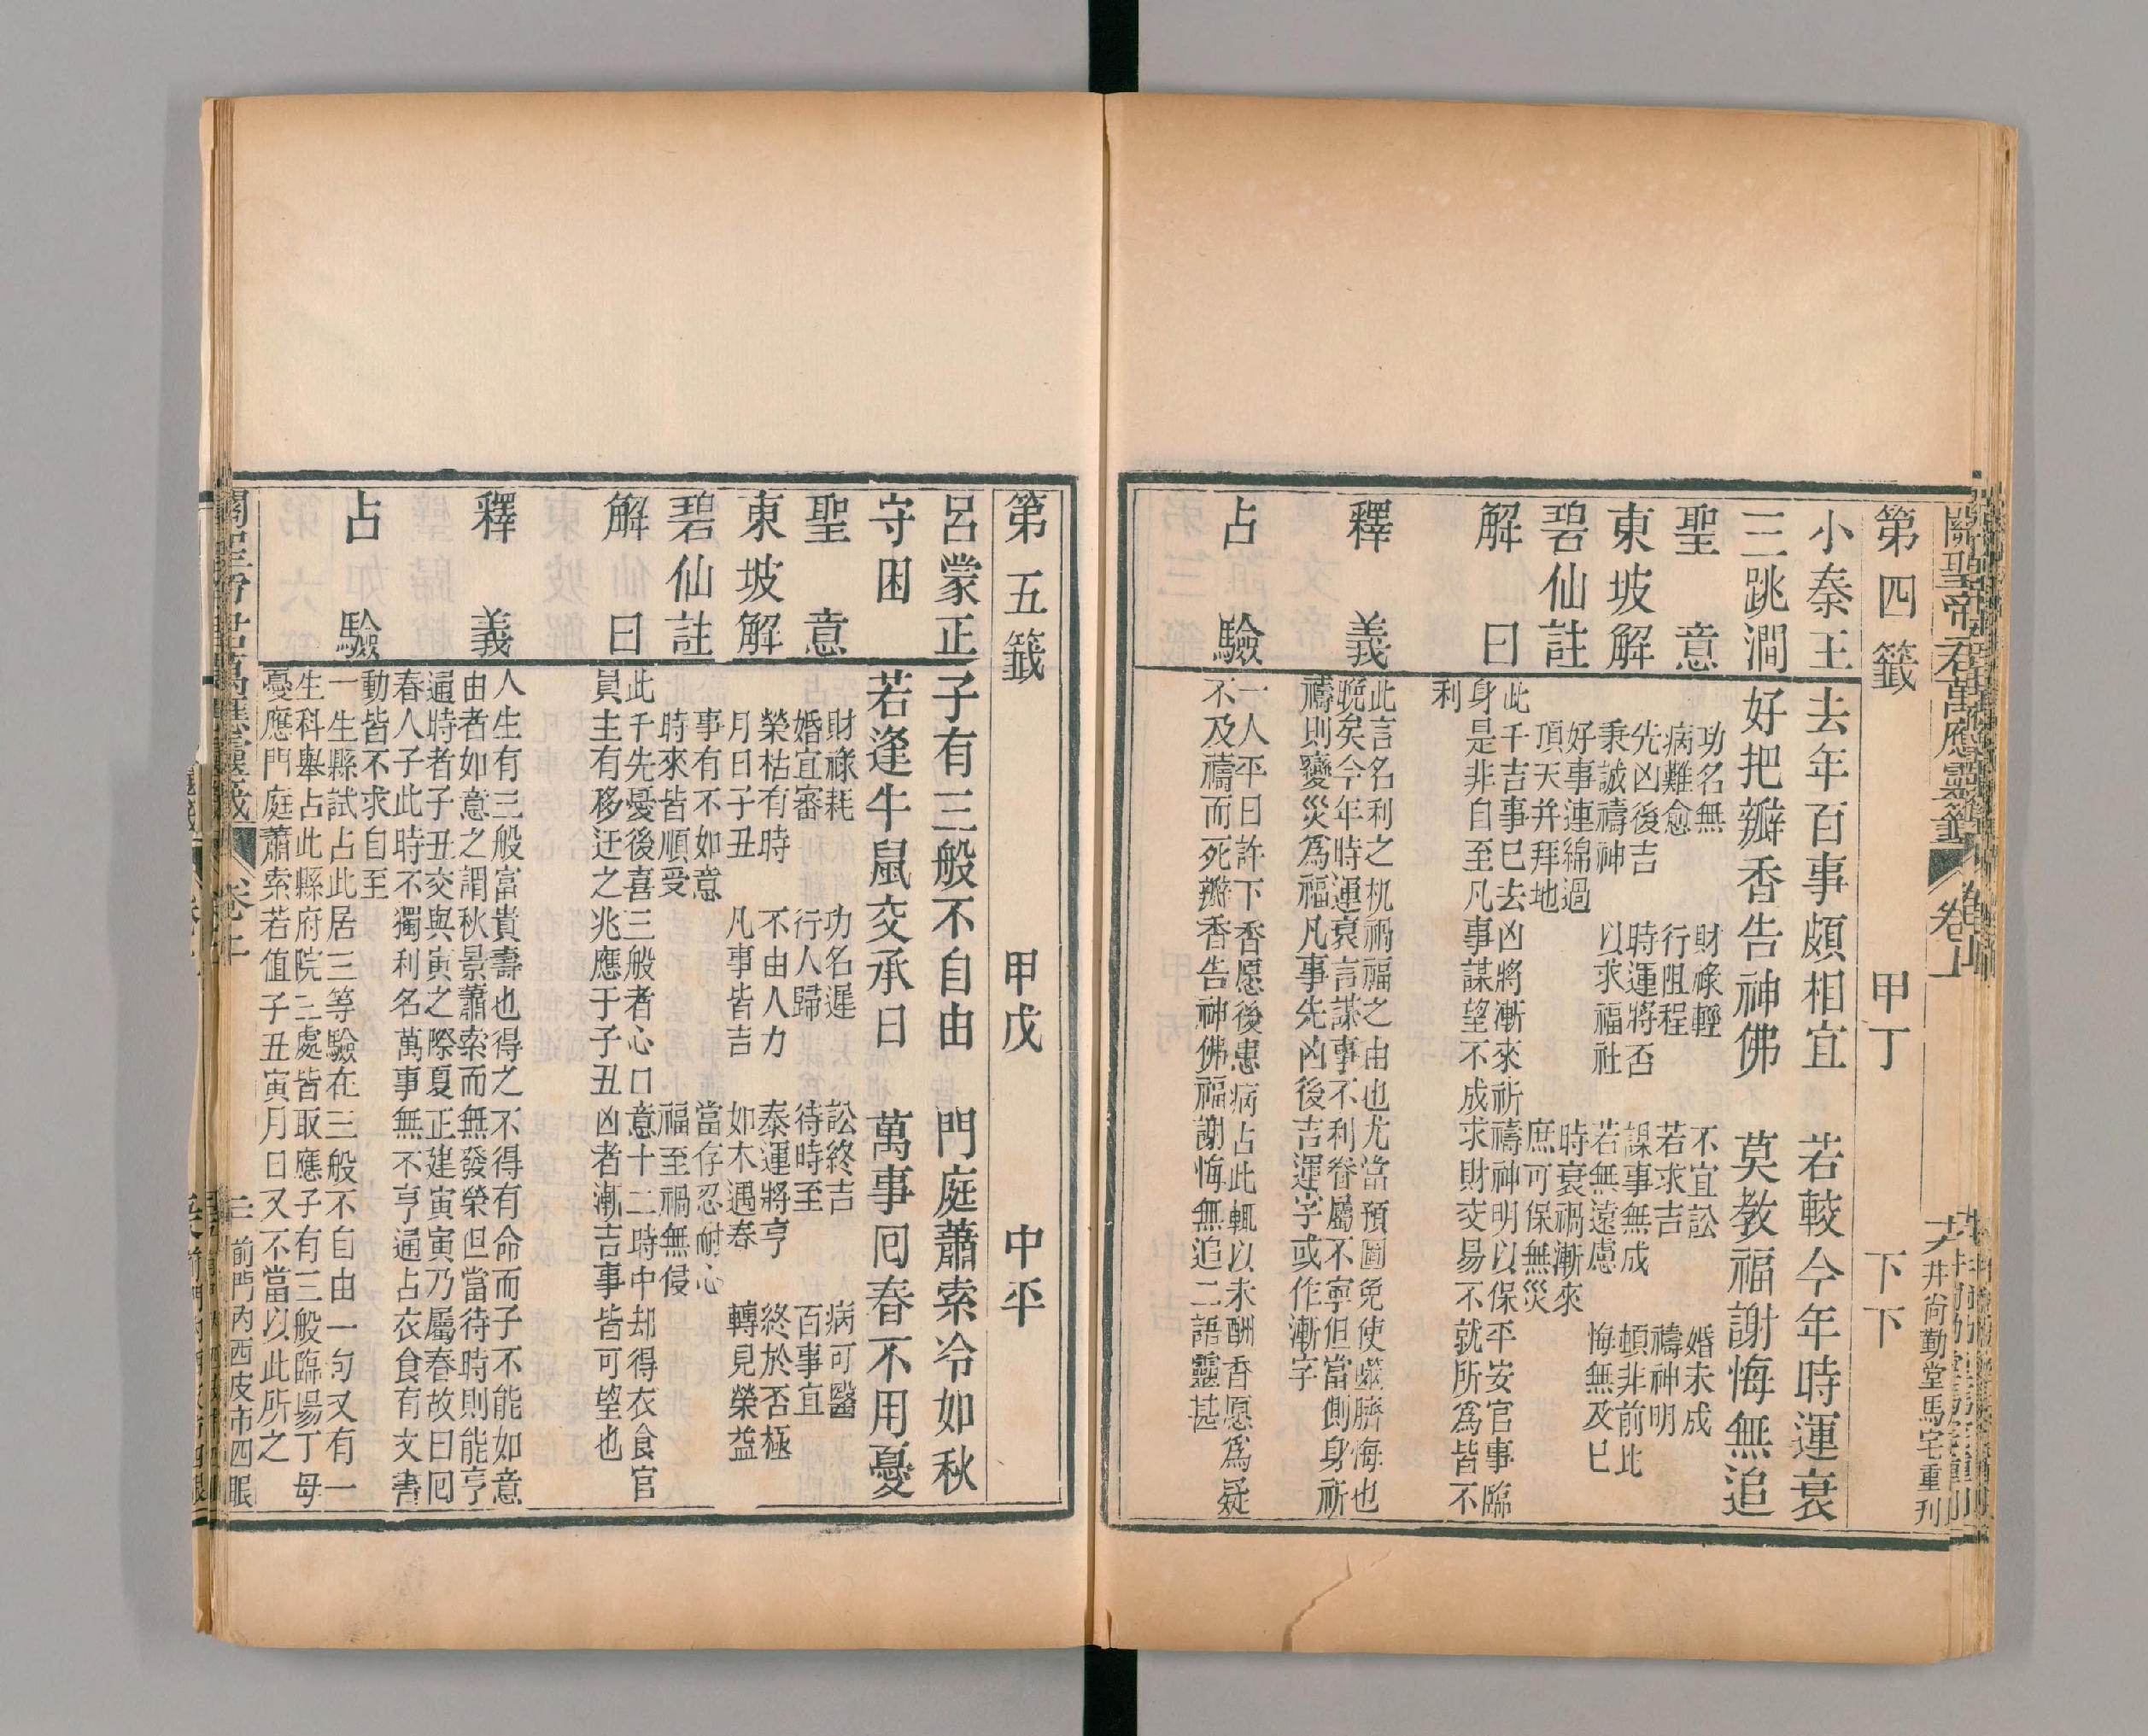 關聖帝君萬應靈籤 卷上
大井尚勤堂馬宅重刊
第四籤 甲丁 下下
小秦王三跳澗
去年百事頗相宜 若較今年時運衰
好把瓣香告神佛 莫教福謝悔無追
聖意
功名無 財祿輕 不宜訟 婚未成
病難愈 行阻程 若求吉 禱神明
東坡解
先凶後吉 時運將否 謀事無成 頓非前比
秉誠禱神 以求福祉 若無遠慮 悔無及已
碧仙註
好事連綿過 時衰禍漸來
頂天并拜地 庶可保無災
解曰
此千吉事已去凶將漸來祈禱神明以保平安官事臨
身是非自至凡事謀望不成求財交易不就所為皆不
利
釋義
此言名利之机禍福之由也尤當預圖免使噬臍海也
晚矣今年時運衰言謀事不利眷屬不寧但當側身祈
禱則變災為福凡事先凶後吉運字或作漸字
占驗
一人平日許下香愿後患病占此輒以未酬香愿為疑
不及禱而死瓣香告神佛福謝悔無追二語靈甚
第五籤 甲戊 中平
呂蒙正守困
子有三般不自由 門庭蕭索冷如秋
若逢牛鼠交承日 萬事囘春不用憂
聖意
財祿耗 功名遲 訟終吉 病可醫
婚宜審 行人歸 待時至 百事宜
東坡解
榮枯有時 不由人力 泰運將亨 終於否極
月日子丑 凡事皆吉 如木遇春 轉見榮益
碧仙註
事有不如意 當存忍耐心
時來皆順受 福至禍無侵
解曰
此千先憂後喜三般者心口意十二時中却得衣食官
員主有移迁之兆應于子丑凶者漸吉事皆可望也
釋義
人生有三般富貴壽也得之不得有命而子不能如意
由者如意之謂秋景蕭索而無發榮但當待時則能亨
通時者子丑交與寅之際夏正建寅寅乃屬春故曰囘
春人子此時不獨利名萬事無不亨通占衣食有文書
動皆不求自至
占驗
一生縣試占此居三等驗在三般不自由一句又有一
生科舉占此縣府院三處皆取應子有三般臨場丁母
憂應門庭蕭索若值子丑寅月日又不當以此所之
關聖帝君萬應靈籤 卷上 三 前門內西皮市四眼